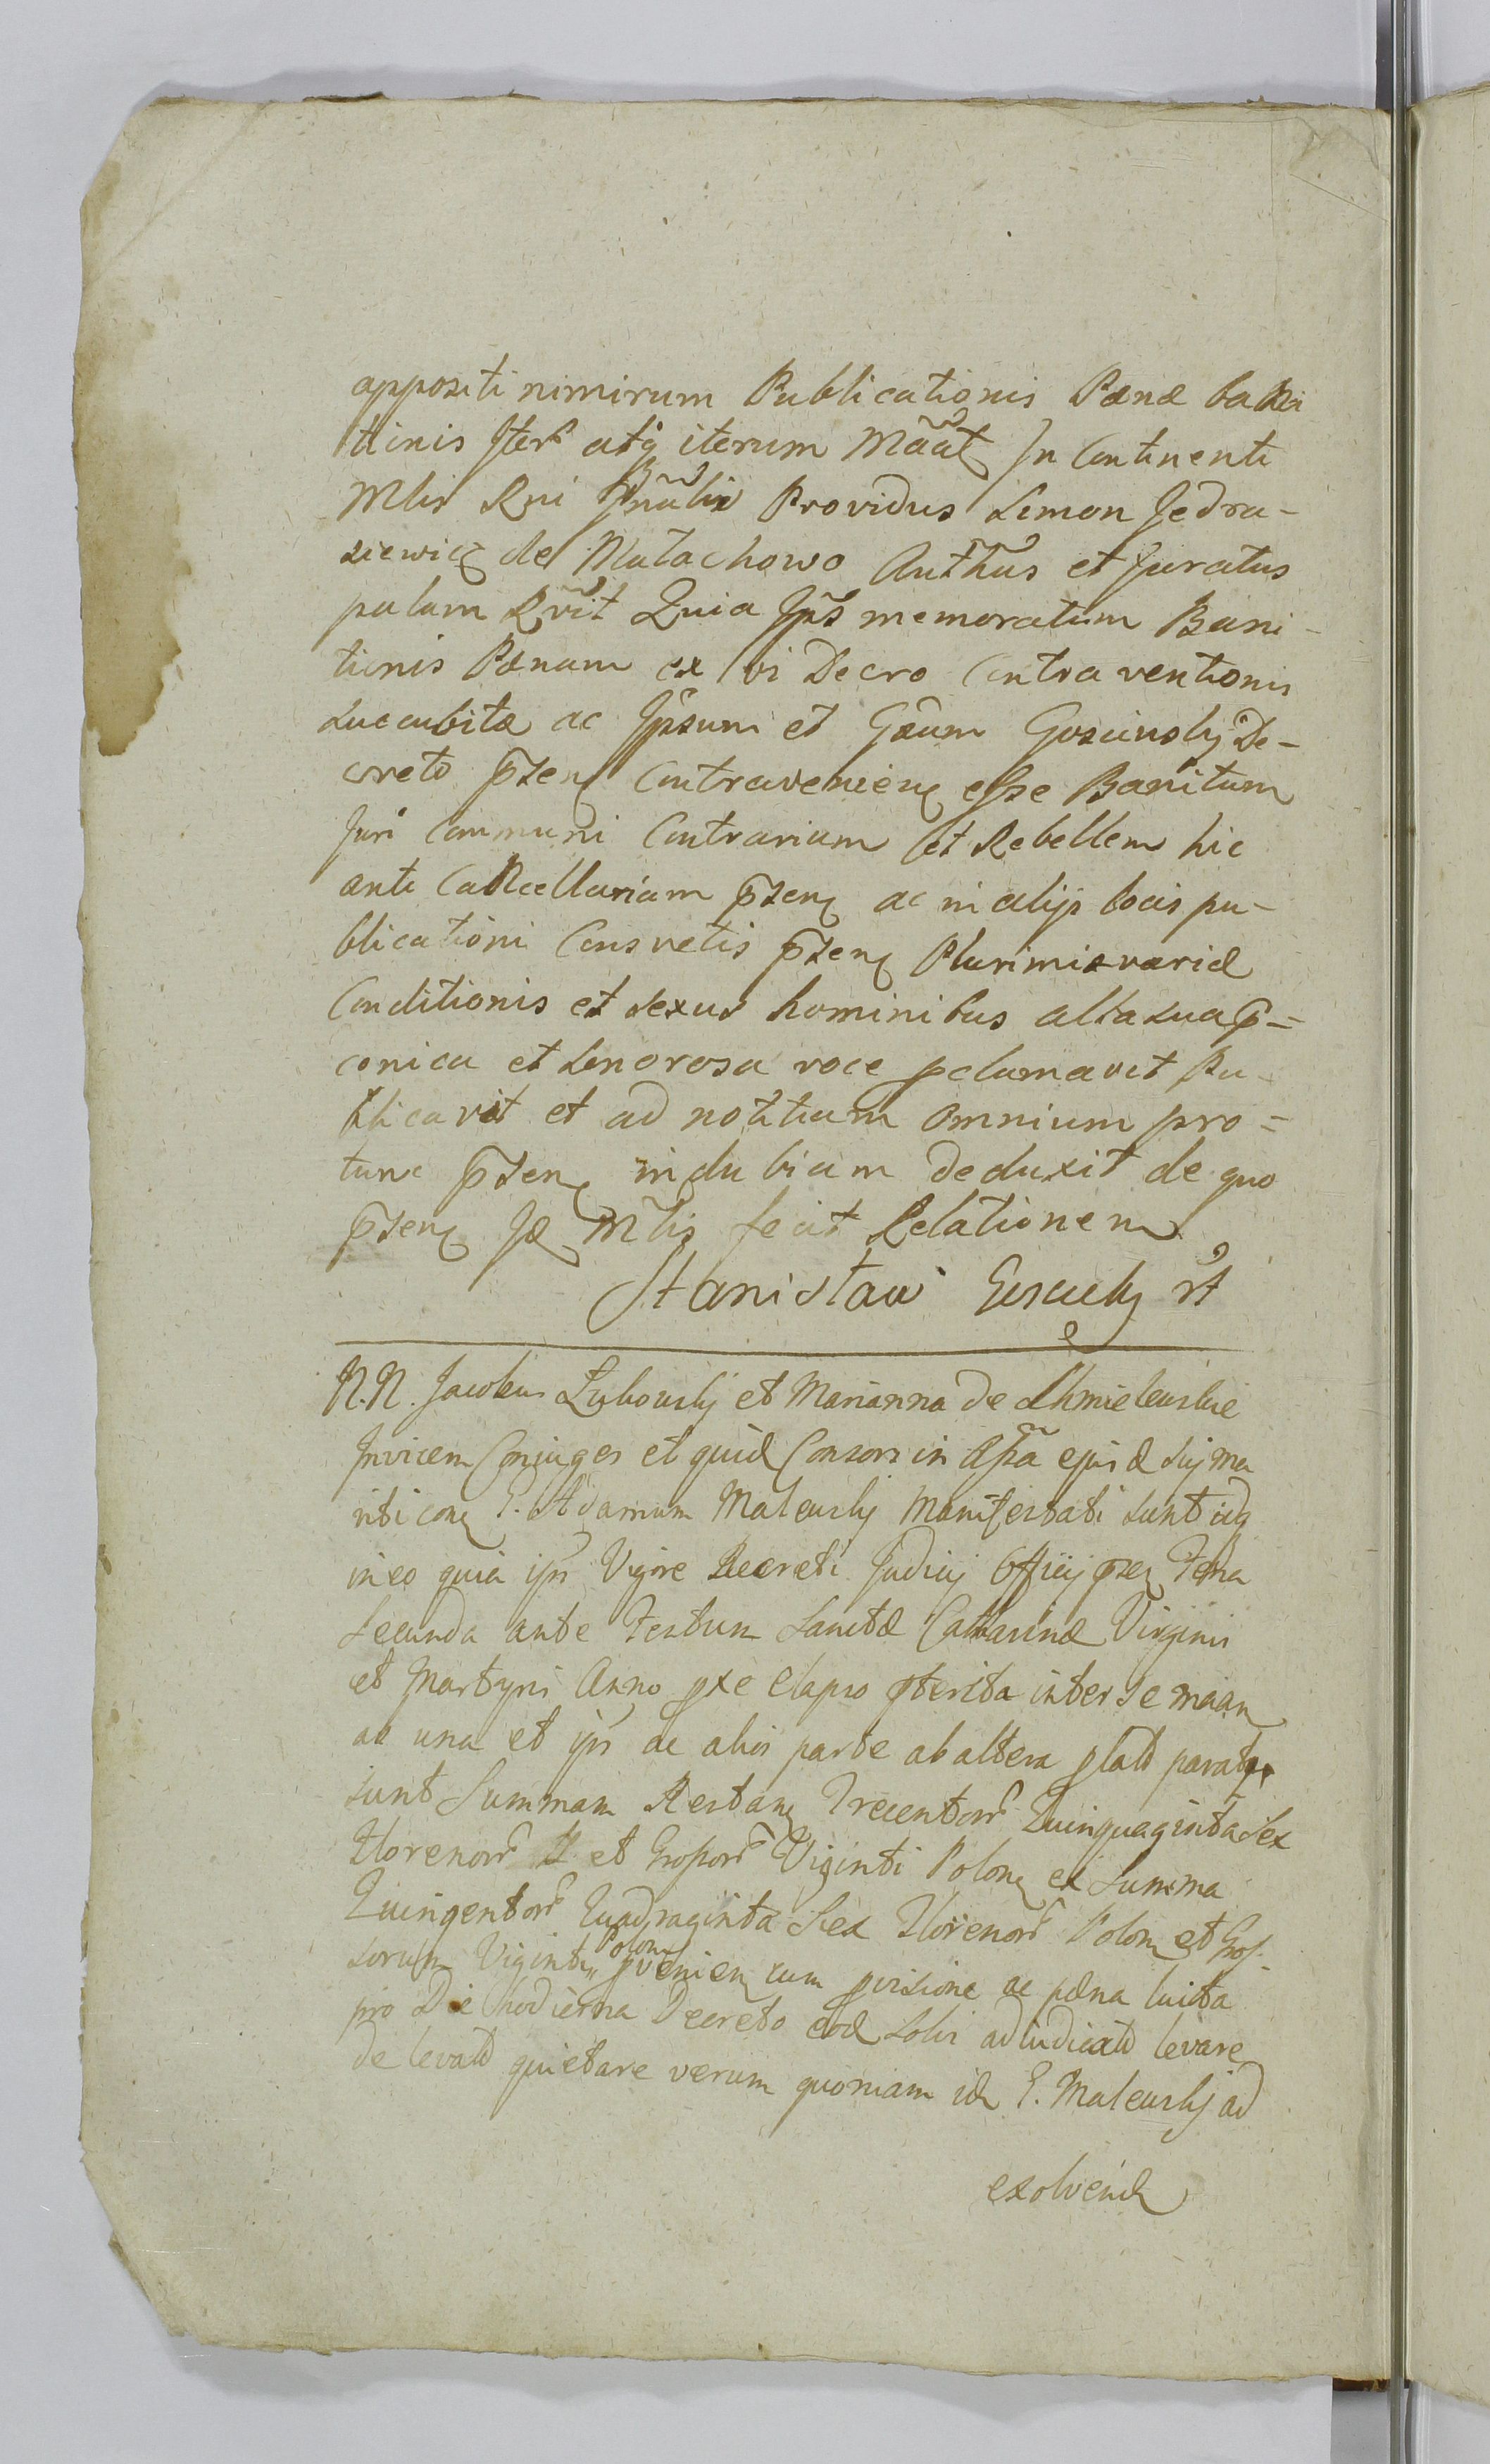 appositi nimirum Publicationis Pænæ banni
tionis Iter atq iterum Mãat In Continenti
Mlis Rni Gñalis Providus Simon Jedra-
siewicz de Małachowo Authus et Juratus
palam Rvit Quia Ips memoratum Bani-
tionis Pænam ex vi Decro Contraventionis
Succubitæ ac Ipsum et Gsum Gosciński De-
creto psens Contravenien esse Banitum
Juri Communi Contrarium et Rebellem hic
ante Cancellariam psen ac in alijs locis pu-
blicationi Consvetis psen Plurimis variæ
Conditionis et Sexus hominibus alta sua p=
conica et Sonorosa voce pclamavit Pu-
blicavit et ad notitiam omnium pro=
tunc psen indubiam deduxit de quo
psen Iæ Mlis fecit Relationem
Stanisław
N.N. Jacobus Łubowski et Marianna de Chmielewskie
Invicem Conjuges et quid Consors in Assa ejusd sui ma
riti con G. Adamum Malewski Manifestati sunt idq
in eo quia ips Vigore Decreti Judicij Officij psen Feria
Secunda ante Festum Sanctæ Catharinæ Virginis
et Martyris Anno pxe elapso pterita inter se
ac una et ips ac aliis parte ab altera plato parati
sunt Summam Restan Trecentor Quinquaginta Sex
Florenor et Grossor Viginti Polon ex Summa
Quingentor Quadraginta Sex Florenor Polon et Gros-
sorum Viginti Polon pvenien cum pvisione ac pæna luita
pro Die hodierna Decreto eod Solvi adiudicato levare
de levato quietare verum quoniam id G. Malewski ad
exolvend